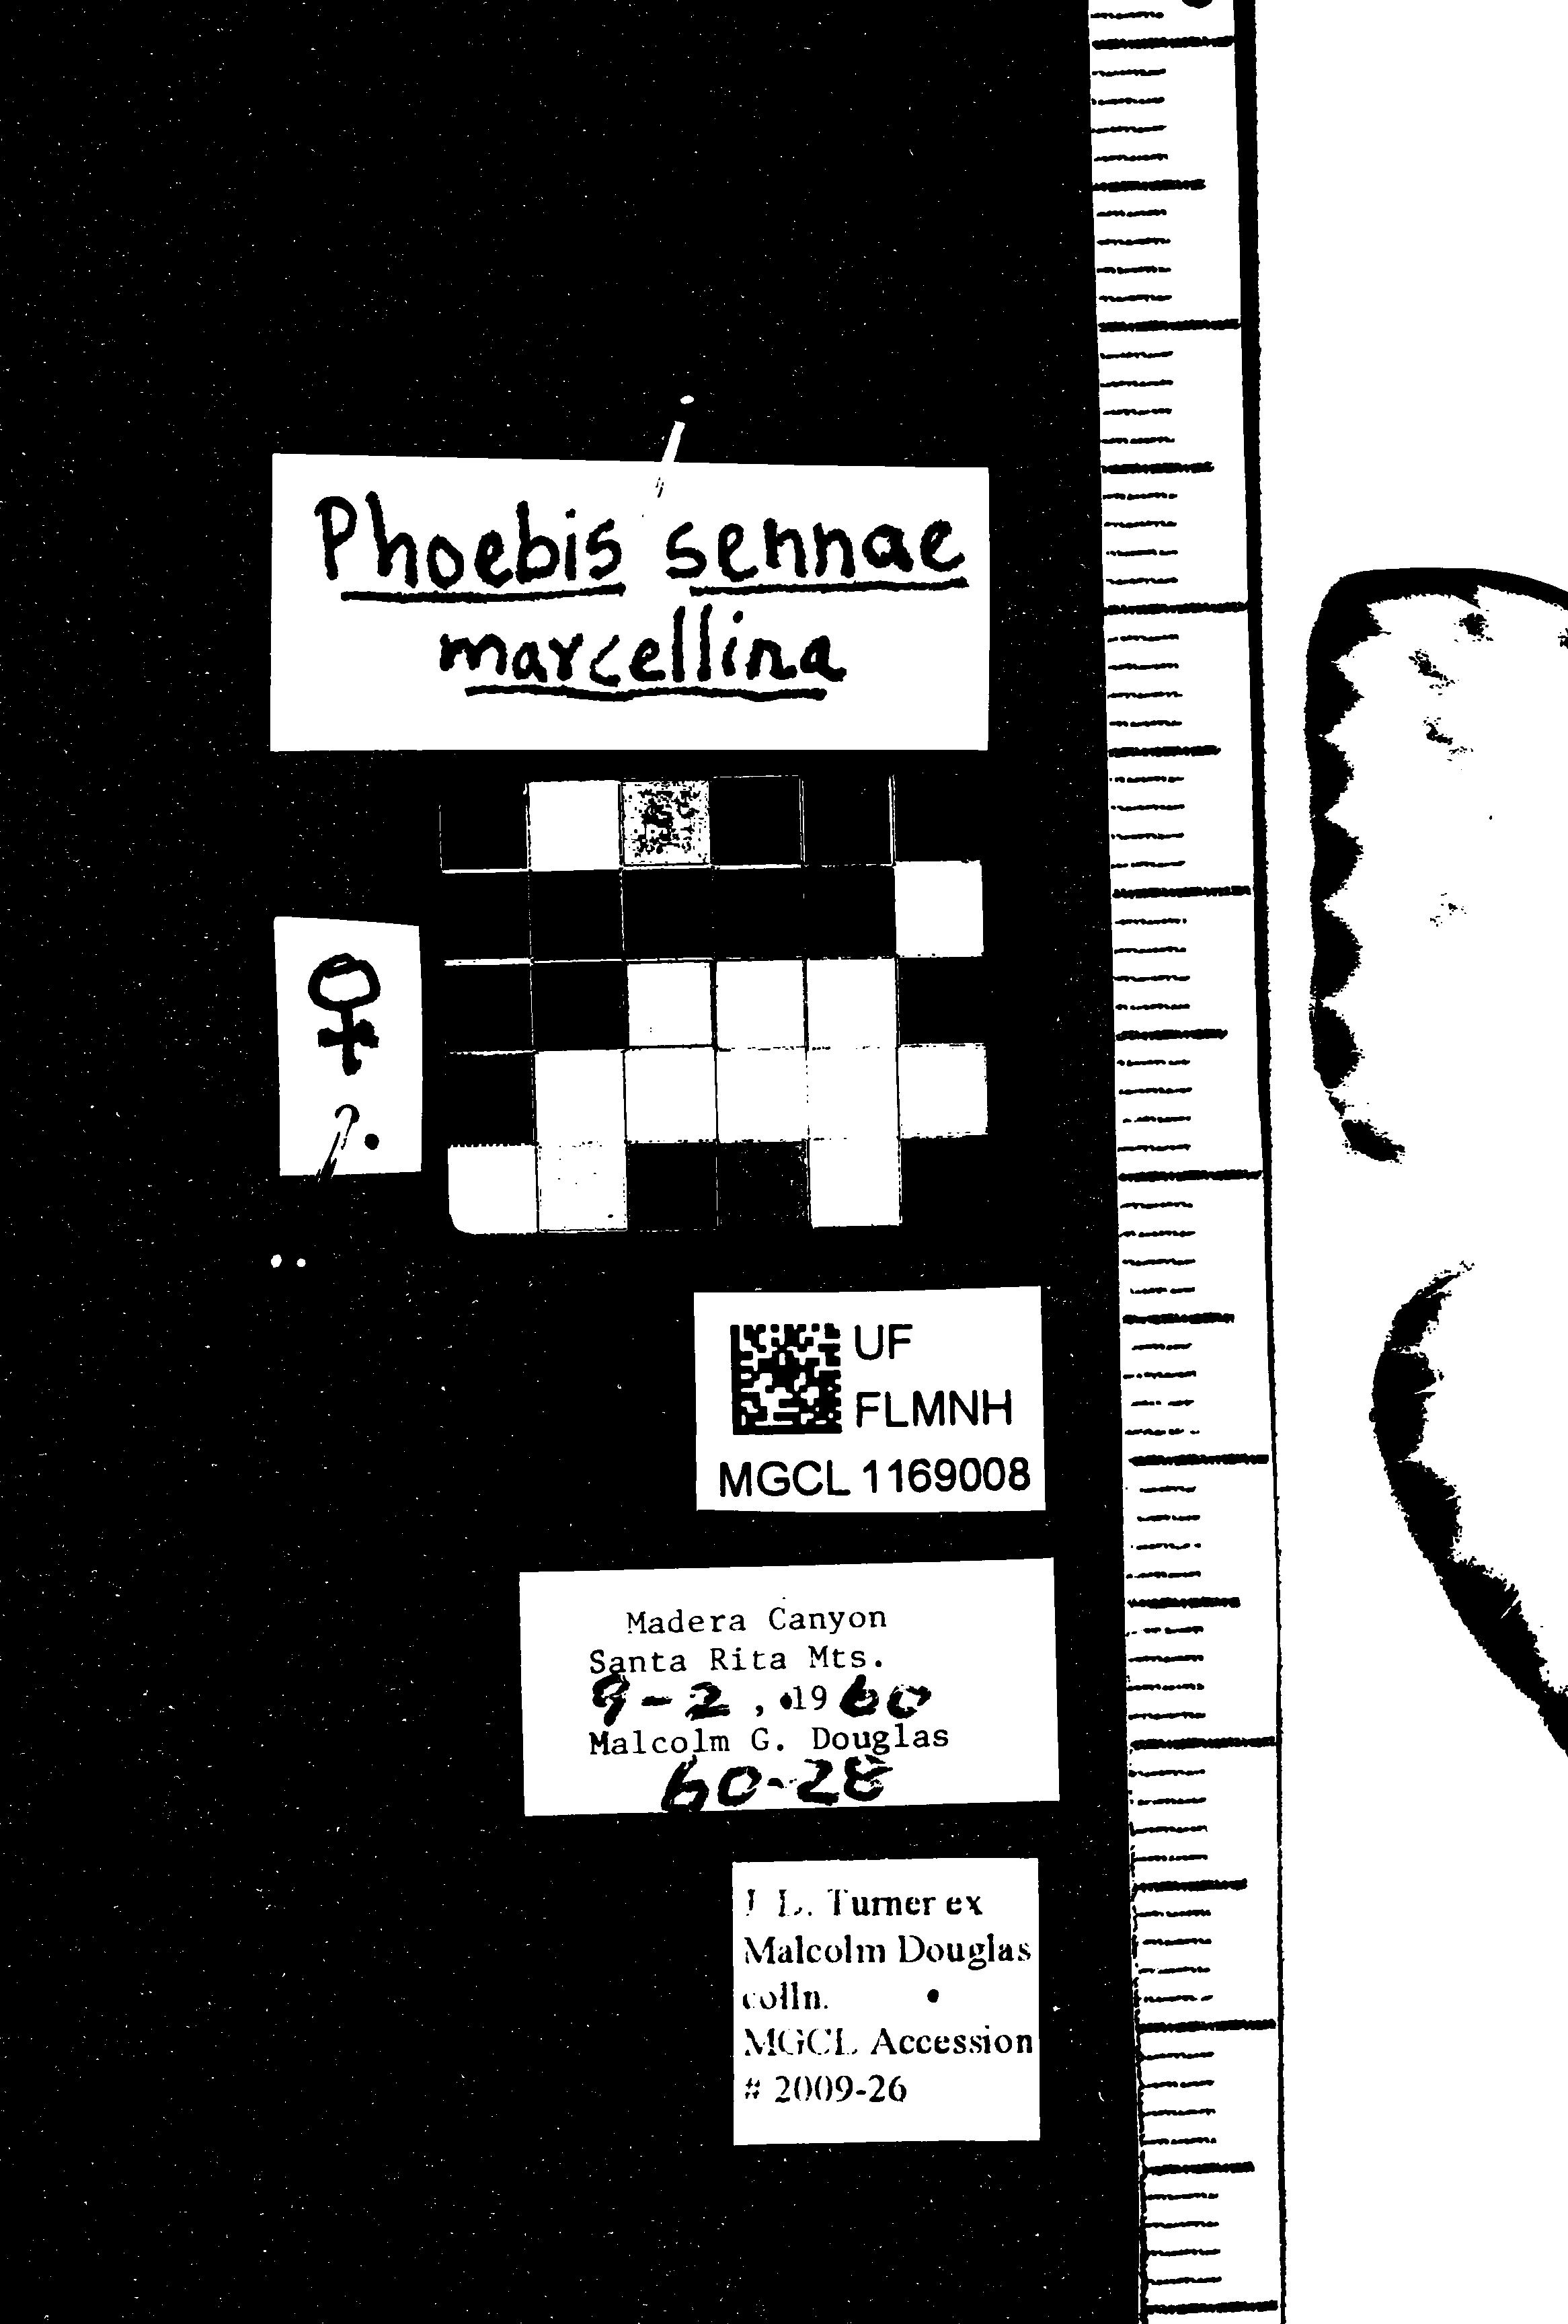 Phoebis sennae
marcellina
♀
?.
UF
FLMNH
MGCL 1169008
Madera Canyon
Santa Rita Mts.
9-2, 1960
Malcolm G. Douglas
60-28
J L. Turner ex
Malcolm Douglas
colln.
MGCL Accession
# 2009-26